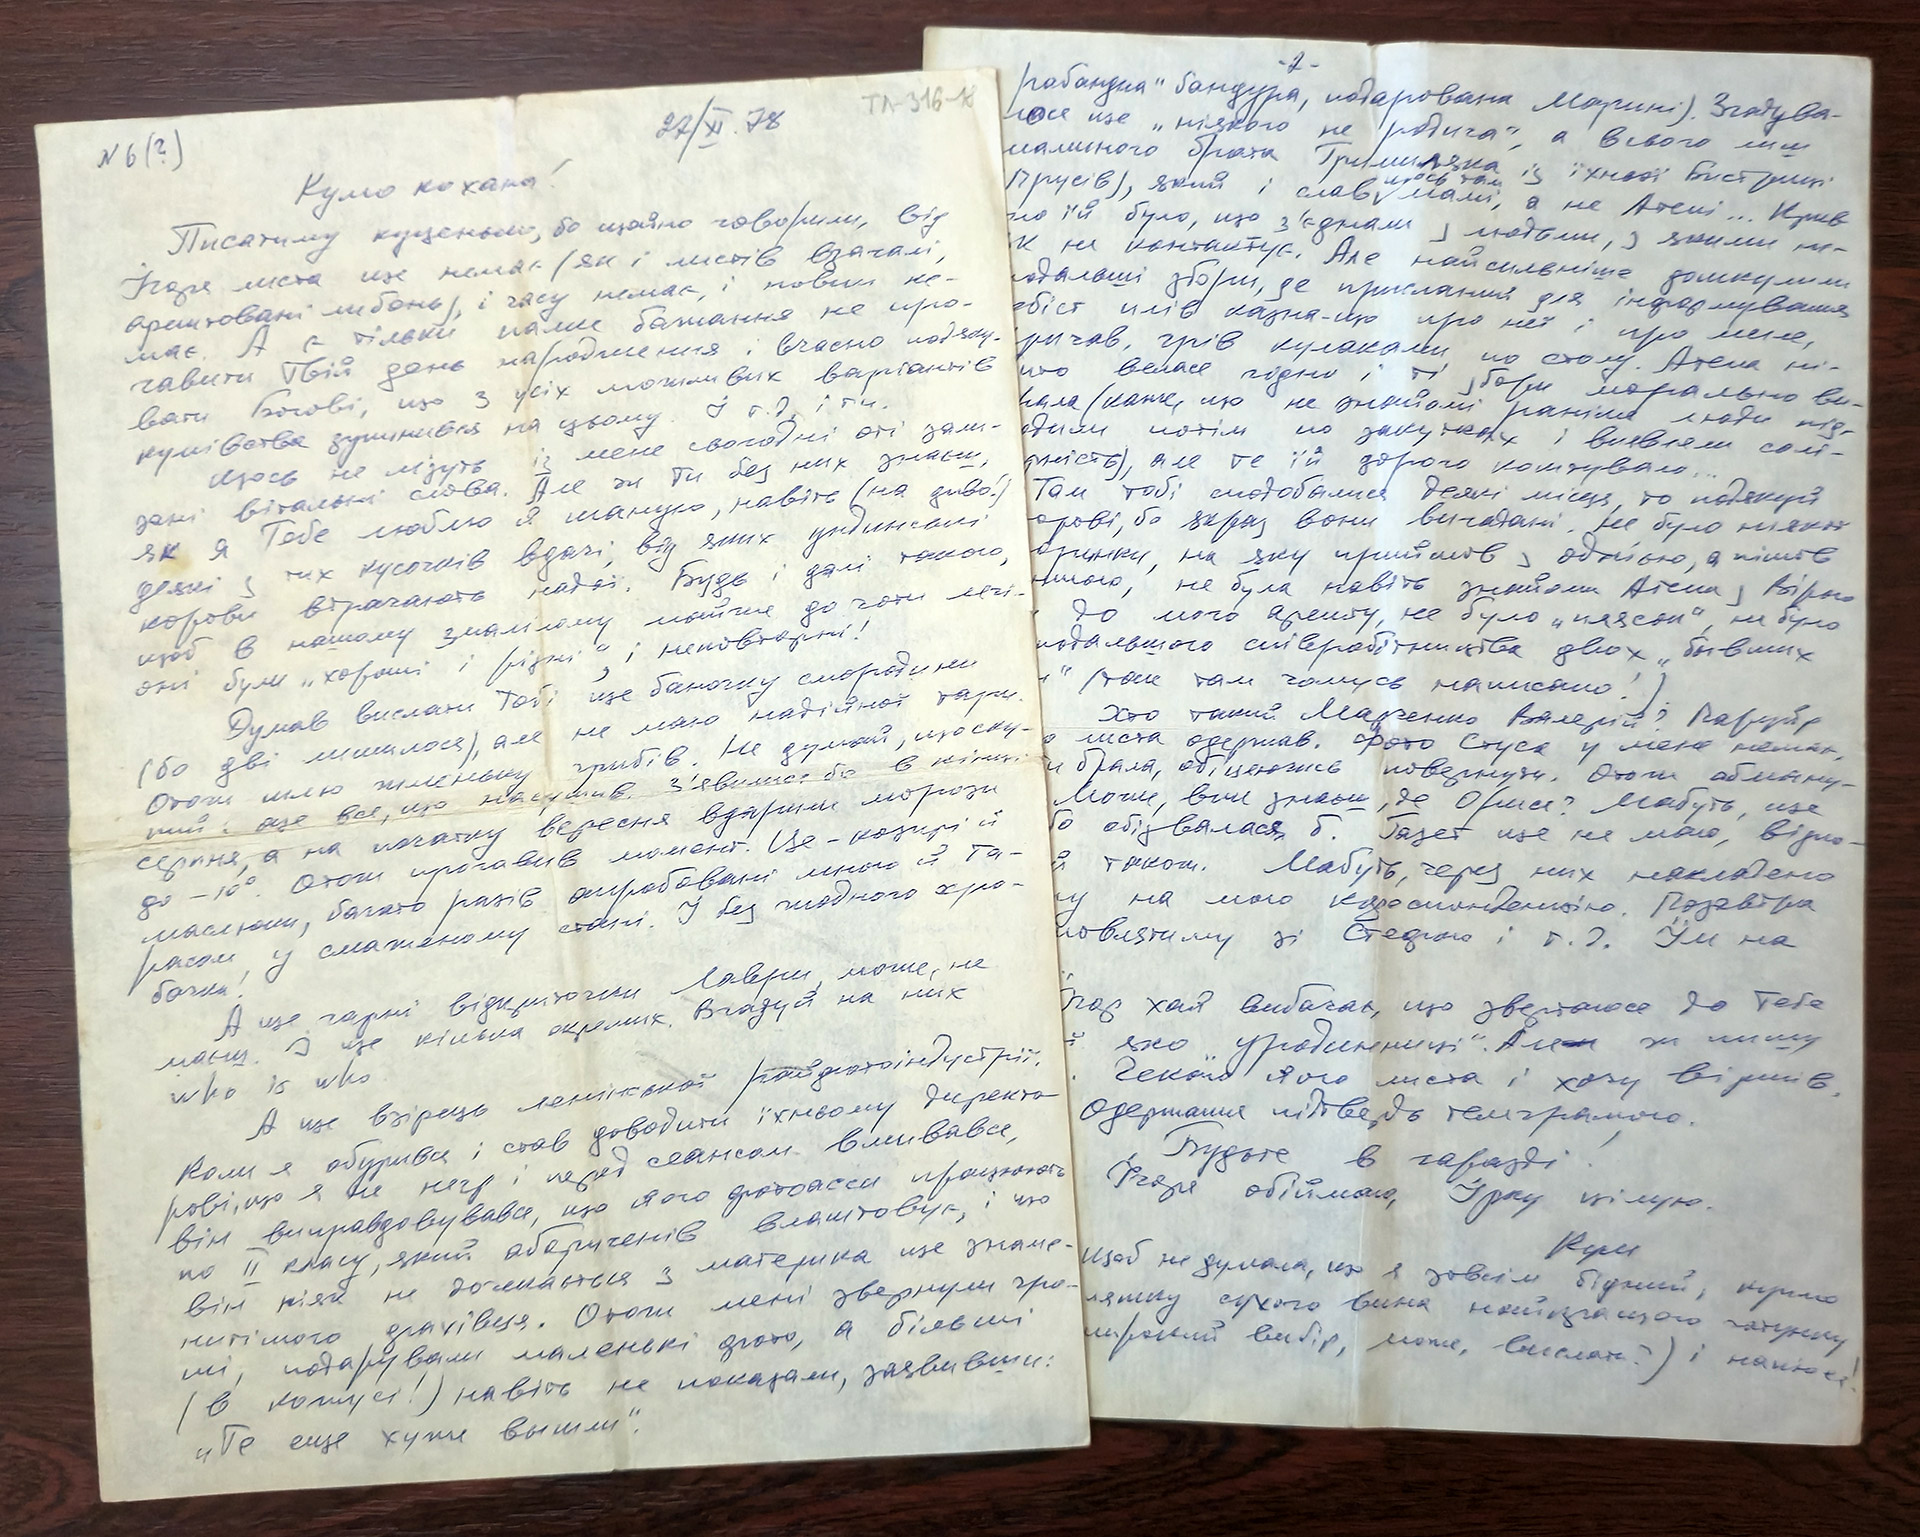 N 6(?)
27/XI.78
ТЛ-316-18
Кумо кохана!
Писатиму куценько, бо щойно говорили, від
Ігоря листа ще немає (як і листів взагалі,
арештовані либонь), і часу немає, і новин не-
має. А є тільки палке бажання не про-
ґавити Твій день народження і вчасно подяку-
вати Богові, що з усіх можливих варіантів
кумівства зупинився на цьому. І т.д. і т.п.
Щось не лізуть із мене сьогодні оті зали-
зані вітальні слова. Але ж Ти без них знаєш,
як я Тебе люблю й шаную, навіть (на диво!)
деякі з тих кусочків вдачі, від яких
корови втрачають надої. Будь і далі такою,
щоб в нашому змалілому майже до чоти легі-
оні були „хороші і різні", і неповторні!
Думав вислати Тобі ще баночку смородини
(бо дві лишилося), але не маю надійної тари.
Отож шлю жменьку грибів. Не думай, що ску-
пий: оце все, що насушив. З'явились бо в кінці
серпня, а на початку вересня вдарили морози
до –10°. Отож проґавив момент. Це – козирі й
маслюки, багато разів апробовані мною й Та-
расом у смаженому стані. І без жодного хро-
бачка!
А ще гарні відкриточки Лаври, може, не
маєш. І ще кілька окремих. Вгадуй на них
who is who
А ще взірець ленінської райфотоіндустрії.
Коли я обурився і став доводити їхньому директо-
рові, що я не негр і перед сеансом вмивався,
він виправдовувався, що його фотоасси працюють
по II класу, який аборигенів влаштовує, і що
він ніяк не дочекається з материка ще знаме-
нитішого фахівця. Отож мені звернули гро-
ші, подарували маленькі фото, а більші
(в кожусі!) навіть не показали, заявивши:
„Те еще хуже вышли".
-2-
рабандна" бандура, подарована Марині). Згадува-
лося ще „ніякого не родича", а всього лиш
малиного брата Гримиляка із їхньої Бистриці
Прусів), який і слав щось там мамі, а не Атені... Крив
ло їй було, що з'єднали з людьми, з якими ні-
к не контактує. Але найсильніше дошкулили
подальші збори, де присланий для інформування
ебіст плів казна-що про неї і про мене,
ричав, грів кулаками по столу. Атена ні-
ито велася гідно і ті збори морально ви-
рала (каже, що не знайомі раніше люди під-
одили потім по закутках і виявляли солі-
рність), але те їй дорого коштувало...
Там тобі сподобалися деякі місця, то подякуй
орові, бо якраз вони вигадані. Не було ніякої
оринки, на яку прийшов з однією, а пішов
ншою, не була навіть знайома Атена з Вірою
до мого арешту, не було „плясок", не було
подальшого співробітництва двох „бывших
" (так там чомусь написано!)
Хто такий Марченко Валерій?
о листа одержав. Фото Стуса у мене немає,
и брала, обіцяючись повернути. Отож обману-
Може, він знає, де Орися? Мабуть, ще
бо обізвалася б. Газет ще не маю, відпо-
й також. Мабуть, через них накладено
у на мою кореспонденцію. Позавтра
мовлятиму зі Стефою і т.д. Їм на
Ігор хай вибачає, що звертаюсь до Тебе
й яко „уродинниці". Але ж пишу
. Чекаю його листа і хочу віршів.
Одержання підтвердь телеграмою.
Будьте в гаразді!
Ігоря обіймаю, Ірку цілую.
Кум
Щоб не думала, що я зовсім бідний, куплю
ляшку сухого вина найкращого ґатунку
широкий вибір, може, вислать?) і нап'юся!